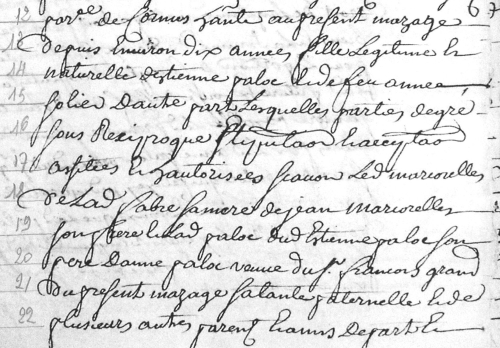 12 par.lle de Sornus habite au present mazage
13 Depuis Environ dix années fille Legitime et
14 naturelle destienne paloc et de feu année
15 solier Dautre part Lesquelles parties de gré
16 sous Reciproque stipulaon et acceptaon
17 assistées et hautorisées scavoir Led mariorelles
18 de Lad fabre sa mere de jean Mariorelles
19 son frere et Lad paloc dud Estienne paloc son
20 pere Danne paloc veuve du Sr francois grand
21 Du present mazage sa tante paternelle et de
22 plusieurs autres parens Et amis Depart Et